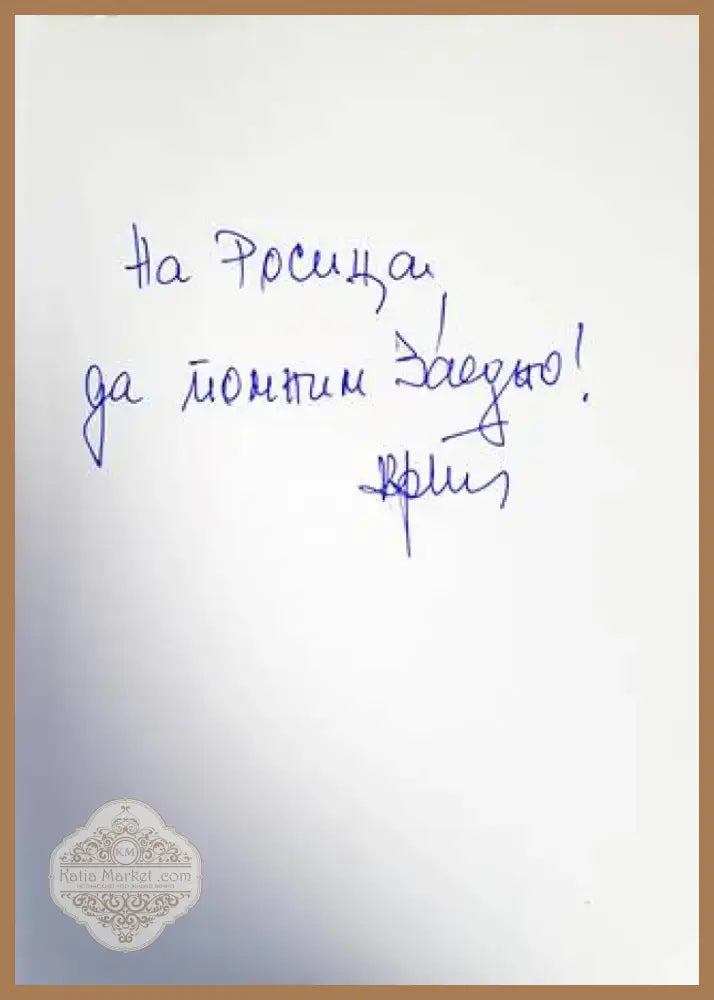 На Росица,
да помним заедно!
KM
Katia Market .com